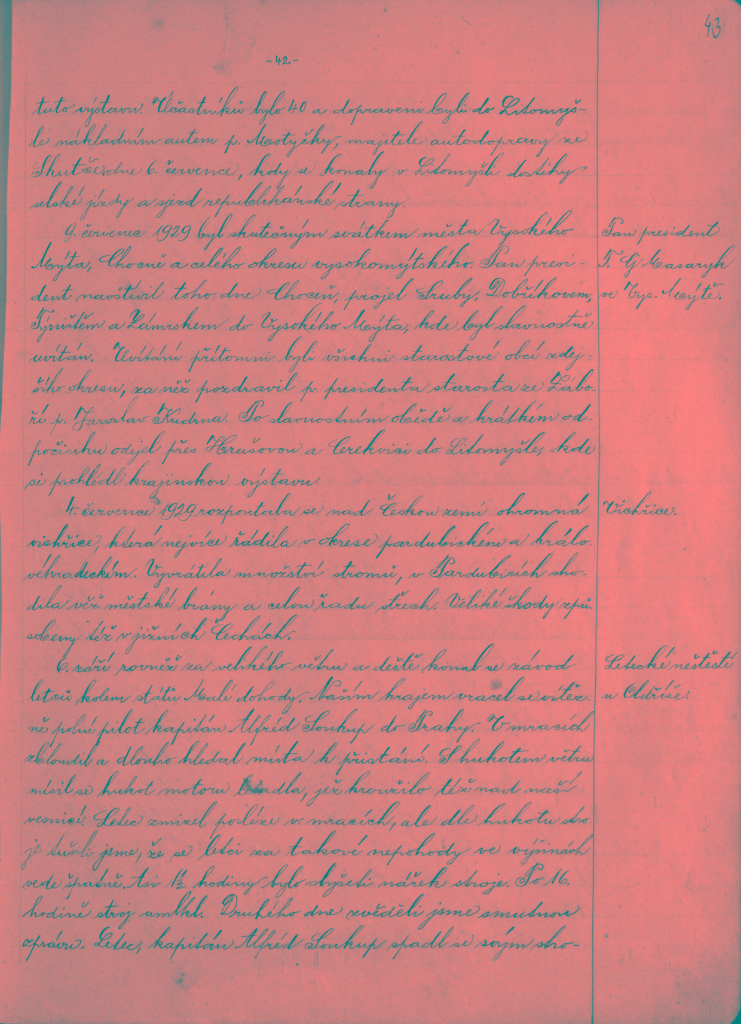 43
-42-
tuto výstavu. Účastníků bylo 40 a dopraveni byli do Litomyš-
le nákladním autem p. Motyčky, majitele autodopravy ze
Skutče dne 6. července, kdy se konaly v Litomyšli dostihy
selské jízdy a sjezd republikánské strany.
9. července 1929 byl skutečným svátkem města Vysokého
Mýta, Chocně a celého okresu vysokomýtského. Pan presi-
dent navštívil toho dne Choceň, projel Sruby, Dobříkovem,
Týništěm a Zámrskem do Vysokého Mýta, kde byl slavnostně
uvítán. Uvítání přítomni byli všichni starostové obcí zdej-
šího okresu, za něž pozdravil p. presidenta starosta ze Zábo-
ří p. Jaroslav Kudrna. Po slavnostním obědě a krátkém od-
počinku odejel přes Hrušovou a Cerekvici do Litomyšle, kde
si prohlédl krajinskou výstavu.
Pan president
T. G. Masaryk
ve Vys. Mýtě.
4. července 1929 rozpoutala se nad Českou zemí ohromná
vichřice, která nejvíce řádila v okrese pardubickém a králo-
véhradeckém. Vyvrátila množství stromů, v Pardubicích sho-
dila věž městské brány a celou řadu střech. Veliké škody způ-
sobeny též v jižních Čechách.
Vichřice.
6. září rovněž za velikého větru a deště konal se závod
letců kolem států Malé dohody. Naším krajem vracel se vítěz-
ně polní pilot kapitán Alfréd Soukup do Prahy. V mracích
zbloudil a dlouho hledal místa k přistání. S hukotem větru
mísil se hukot motoru letadla, jež kroužilo též nad naší
vesnicí. Letec zmizel posléze v mracích, ale dle hukotu stro-
je tušili jsme, že se letci za takové nepohody ve výšinách
vede špatně. Asi 1½ hodiny bylo slyšeti nářek stroje. Po 16.
hodině stroj umlkl. Druhého dne zvěděli jsme smutnou
zprávu. Letec, kapitán Alfréd Soukup spadl se svým stro-
Letecké neštěstí
u Oldříše.